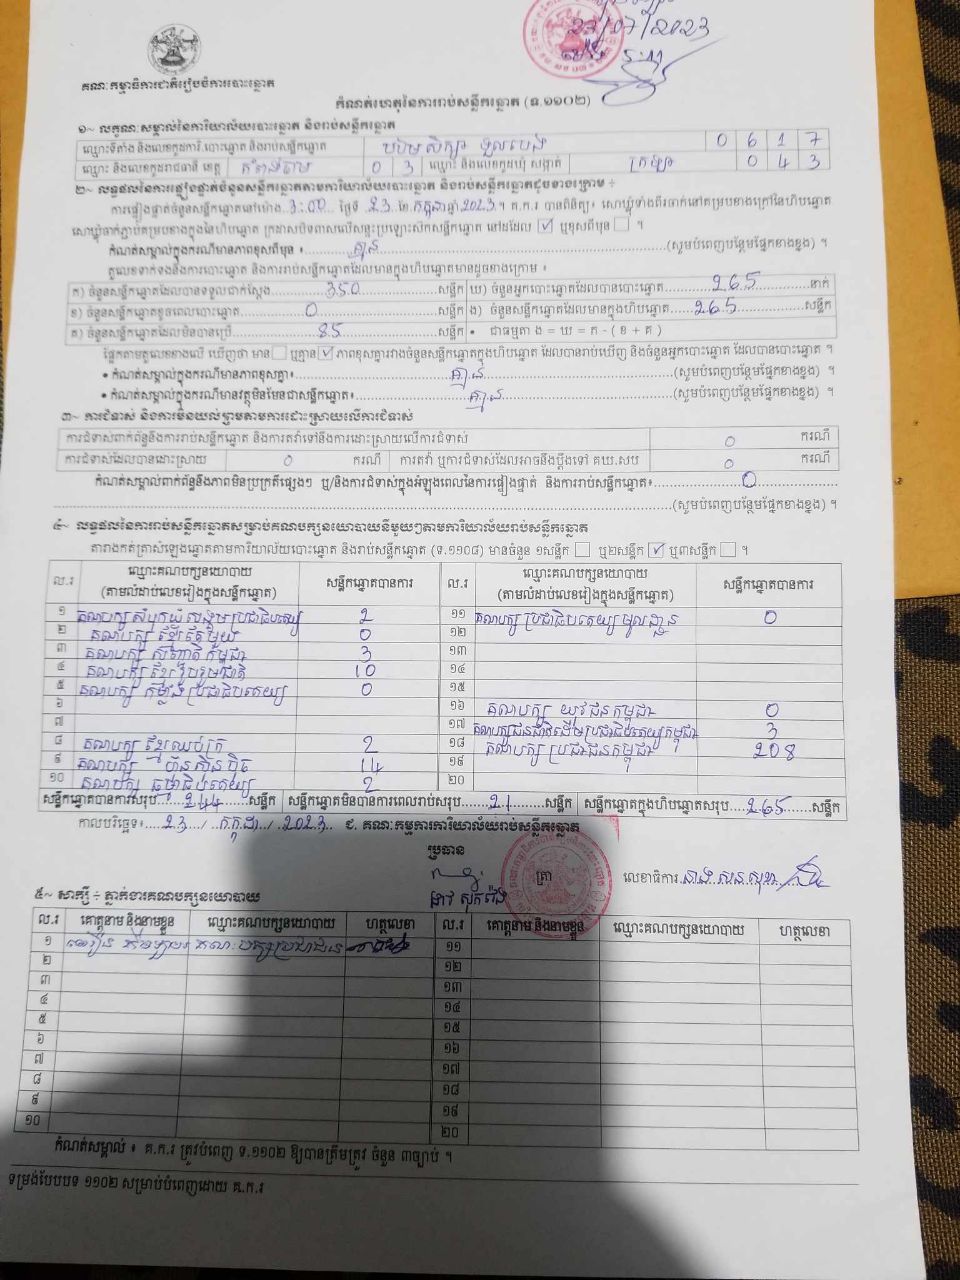 23/07/2023
5:11
គណៈកម្មាធិការជាតិរៀបចំការបោះឆ្នោត
កំណត់ហេតុនៃការរាប់សន្លឹកឆ្នោត (ទ.១១០២)
១~ លក្ខណៈសម្គាល់នៃការិយាល័យបោះឆ្នោត និងរាប់សន្លឹកឆ្នោត
ឈ្មោះទីតាំង និងលេខកូដការិ.បោះឆ្នោត និងរាប់សន្លឹកឆ្នោត 0 6 1 7
ឈ្មោះ និងលេខកូដរាជធានី ខេត្ត កំពង់ចាម 0 3 ឈ្មោះ និងលេខកូដឃុំ សង្កាត់ 0 4 3
២~ លទ្ធផលនៃការផ្ទៀងផ្ទាត់ចំនួនសន្លឹកឆ្នោតតាមការិយាល័យបោះឆ្នោត និងរាប់សន្លឹកឆ្នោតដូចខាងក្រោម ÷
ការផ្ទៀងផ្ទាត់ចំនួនសន្លឹកឆ្នោតនៅម៉ោង 3:00 ថ្ងៃទី 23 ខែ កក្កដា ឆ្នាំ 2023 ។ គ.ក.រ បានពិនិត្យ៖ សោឃ្មុំទាំងពីរចាក់នៅគម្របខាងក្រៅនៃហិបឆ្នោត
សោឃ្មុំចាក់ភ្ជាប់គម្របខាងក្នុងនៃហិបឆ្នោត ក្រដាសបិទពាសលើសន្ទះប្រឡោះស៊កសន្លឹកឆ្នោត នៅដដែល ☑ ឬខុសពីមុន ☐ ។
កំណត់សម្គាល់ក្នុងករណីមានភាពខុសពីមុន ៖ គ្មាន (សូមបំពេញបន្ថែមផ្នែកខាងខ្នង) ។
តួលេខទាក់ទងនឹងការបោះឆ្នោត និងការរាប់សន្លឹកឆ្នោតដែលមានក្នុងហិបឆ្នោតមានដូចខាងក្រោម ៖
ក) ចំនួនសន្លឹកឆ្នោតដែលបានទទួលជាក់ស្តែង 350 សន្លឹក ឃ) ចំនួនអ្នកបោះឆ្នោតដែលបានបោះឆ្នោត 265 នាក់
ខ) ចំនួនសន្លឹកឆ្នោតខូចពេលបោះឆ្នោត 0 សន្លឹក ង) ចំនួនសន្លឹកឆ្នោតដែលមានក្នុងហិបឆ្នោត 265 សន្លឹក
គ) ចំនួនសន្លឹកឆ្នោតដែលមិនបានប្រើ 85 សន្លឹក • ជាធម្មតា ង = ឃ = ក - ( ខ + គ )
ផ្អែកតាមតួលេខខាងលើ ឃើញថា មាន ☐ ឬគ្មាន ☑ ភាពខុសគ្នារវាងចំនួនសន្លឹកឆ្នោតក្នុងហិបឆ្នោត ដែលបានរាប់ឃើញ និងចំនួនអ្នកបោះឆ្នោត ដែលបានបោះឆ្នោត ។
• កំណត់សម្គាល់ក្នុងករណីមានភាពខុសគ្នា៖ គ្មាន (សូមបំពេញបន្ថែមផ្នែកខាងខ្នង) ។
• កំណត់សម្គាល់ក្នុងករណីមានវត្ថុមិនមែនជាសន្លឹកឆ្នោត៖ គ្មាន (សូមបំពេញបន្ថែមផ្នែកខាងខ្នង) ។
៣~ ការជំទាស់ និងការមិនយល់ព្រមតាមការដោះស្រាយលើការជំទាស់
ការជំទាស់ពាក់ព័ន្ធនឹងការរាប់សន្លឹកឆ្នោត និងការតវ៉ាទៅនឹងការដោះស្រាយលើការជំទាស់ 0 ករណី
ការជំទាស់ដែលបានដោះស្រាយ 0 ករណី ការតវ៉ា ឬការជំទាស់ដែលអាចនឹងប្តឹងទៅ គឃ.សប 0 ករណី
កំណត់សម្គាល់ពាក់ព័ន្ធនឹងភាពមិនប្រក្រតីផ្សេងៗ ឬ/និងការជំទាស់ក្នុងអំឡុងពេលនៃការផ្ទៀងផ្ទាត់ និងការរាប់សន្លឹកឆ្នោត៖ 0
(សូមបំពេញបន្ថែមផ្នែកខាងខ្នង) ។
៤~ លទ្ធផលនៃការរាប់សន្លឹកឆ្នោតសម្រាប់គណបក្សនយោបាយនីមួយៗតាមការិយាល័យរាប់សន្លឹកឆ្នោត
តារាងកត់ត្រាសំឡេងឆ្នោតតាមការិយាល័យបោះឆ្នោត និងរាប់សន្លឹកឆ្នោត (ទ.១១០៨) មានចំនួន ១សន្លឹក ☐ ឬ២សន្លឹក ☑ ឬ៣សន្លឹក ☐ ។
ល.រ ឈ្មោះគណបក្សនយោបាយ (តាមលំដាប់លេខរៀងក្នុងសន្លឹកឆ្នោត) សន្លឹកឆ្នោតបានការ ល.រ ឈ្មោះគណបក្សនយោបាយ (តាមលំដាប់លេខរៀងក្នុងសន្លឹកឆ្នោត) សន្លឹកឆ្នោតបានការ
១ គណបក្ស សំបុកឃ្មុំសង្គមប្រជាធិបតេយ្យ 2 ១១ គណបក្ស ប្រជាធិបតេយ្យមូលដ្ឋាន 0
២ គណបក្ស ខ្មែរតែមួយ 0 ១២
៣ គណបក្ស សញ្ជាតិកម្ពុជា 3 ១៣
៤ គណបក្ស ខ្មែររួបរួមជាតិ 10 ១៤
៥ គណបក្ស កម្លាំងប្រជាធិបតេយ្យ 0 ១៥
៦ ១៦ គណបក្ស យុវជនកម្ពុជា 0
៧ ១៧ គណបក្សជនជាតិដើមប្រជាធិបតេយ្យកម្ពុជា 3
៨ គណបក្ស ខ្មែរឈប់ក្រ 2 ១៨ គណបក្ស ប្រជាជនកម្ពុជា 208
៩ គណបក្ស ហ៊្វុនស៊ិនប៉ិច 14 ១៩
១០ គណបក្ស ធម្មាធិបតេយ្យ 2 ២០
សន្លឹកឆ្នោតបានការសរុប 244 សន្លឹក សន្លឹកឆ្នោតមិនបានការពេលរាប់សរុប 21 សន្លឹក សន្លឹកឆ្នោតក្នុងហិបឆ្នោតសរុប 265 សន្លឹក
កាលបរិច្ឆេទ៖ 23 / កក្កដា / 2023 ជ. គណៈកម្មការការិយាល័យរាប់សន្លឹកឆ្នោត
ប្រធាន
ត្រា លេខាធិការ
៥~ សាក្សី ÷ ភ្នាក់ងារគណបក្សនយោបាយ
ល.រ គោត្តនាម និងនាមខ្លួន ឈ្មោះគណបក្សនយោបាយ ហត្ថលេខា ល.រ គោត្តនាម និងនាមខ្លួន ឈ្មោះគណបក្សនយោបាយ ហត្ថលេខា
១ គណៈបក្សប្រជាជន ១១
២ ១២
៣ ១៣
៤ ១៤
៥ ១៥
៦ ១៦
៧ ១៧
៨ ១៨
៩ ១៩
១០ ២០
កំណត់សម្គាល់ ៖ គ.ក.រ ត្រូវបំពេញ ទ.១១០២ ឱ្យបានត្រឹមត្រូវ ចំនួន ៣ច្បាប់ ។
ទម្រង់បែបបទ ១១០២ សម្រាប់បំពេញដោយ គ.ក.រ